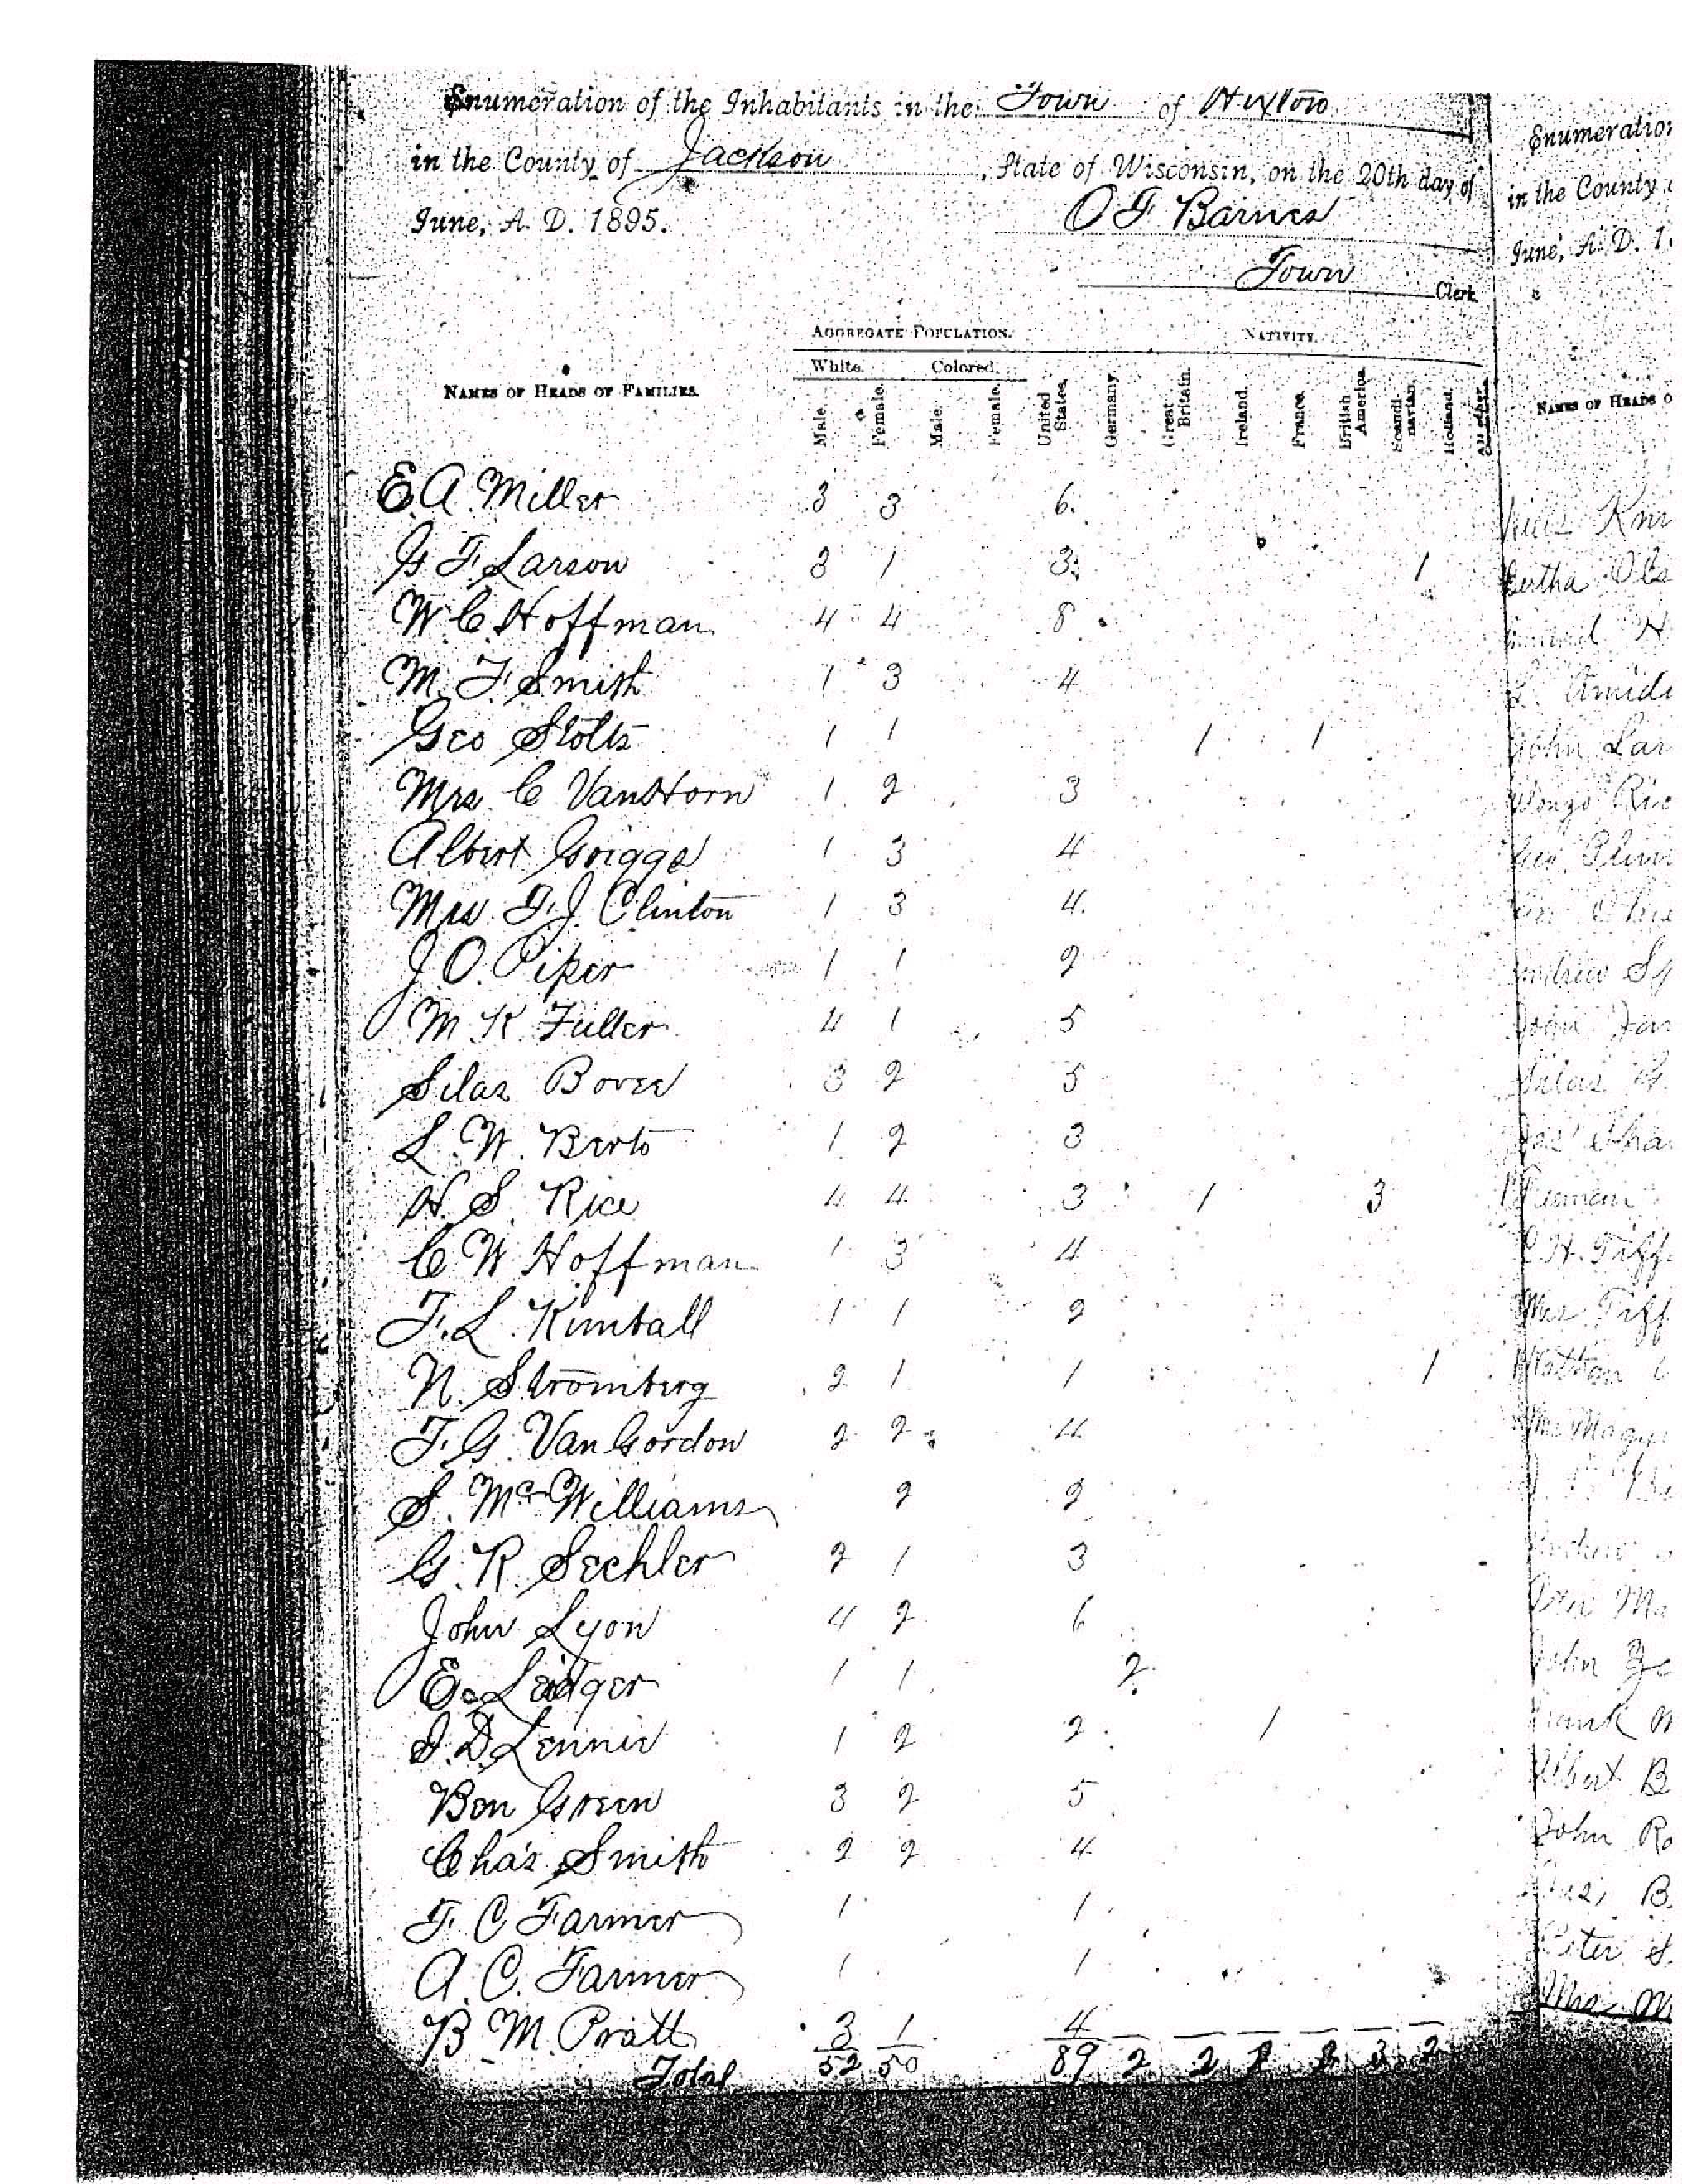 Enumeration of the Inhabitants in the Town of Hixton
in the County of Jackson, State of Wisconsin, on the 20th day of
June, A. D. 1895.
O F Barnes
Town Clerk
AGGREGATE POPULATION. NATIVITY.
White. Colored.
NAMES OF HEADS OF FAMILIES. Male. Female. Male. Female. United States. Germany. Great Britain. Ireland. France. British America. Scandinavian. Holland. All other
E. A. Miller 3 3 6
G F Larson 3 1 3 1
W. C. Hoffman 4 4 8
M. F Smith 1 3 4
Geo Stolts 1 1 1 1
Mrs. C VanHorn 1 2 3
Albert Griggs 1 3 4
Mrs. F. J. Clinton 1 3 4
J. O. Piper 1 1 2
M K Fuller 4 1 5
Silas Bovee 3 2 5
L. W. Berto 1 2 3
H. S. Rice 4 4 3 1 3
C W Hoffman 1 3 4
F. L. Kimball 1 1 2
N. Stromberg 2 1 1 1
F. G. VanGordon 2 2 4
S. McWilliams 2 2
G. R. Sechler 2 1 3
John Lyon 4 2 6
E. Leidger 1 1 2
J. D. Lennie 1 2 2 1
Ben Green 3 2 5
Chas Smith 2 2 4
F. C Farmer 1 1
A. C. Farmer 1 1
B. M. Pratt 3 1 4
Total 52 50 89 2 2 3 2
Enumeration
in the County
June, A. D. 1
NAMES OF HEADS O
John Lar
John
Silas
C. H. Tiff
Mrs Tiff
John
Frank
Albert B
John Ro
B.
Peter S.